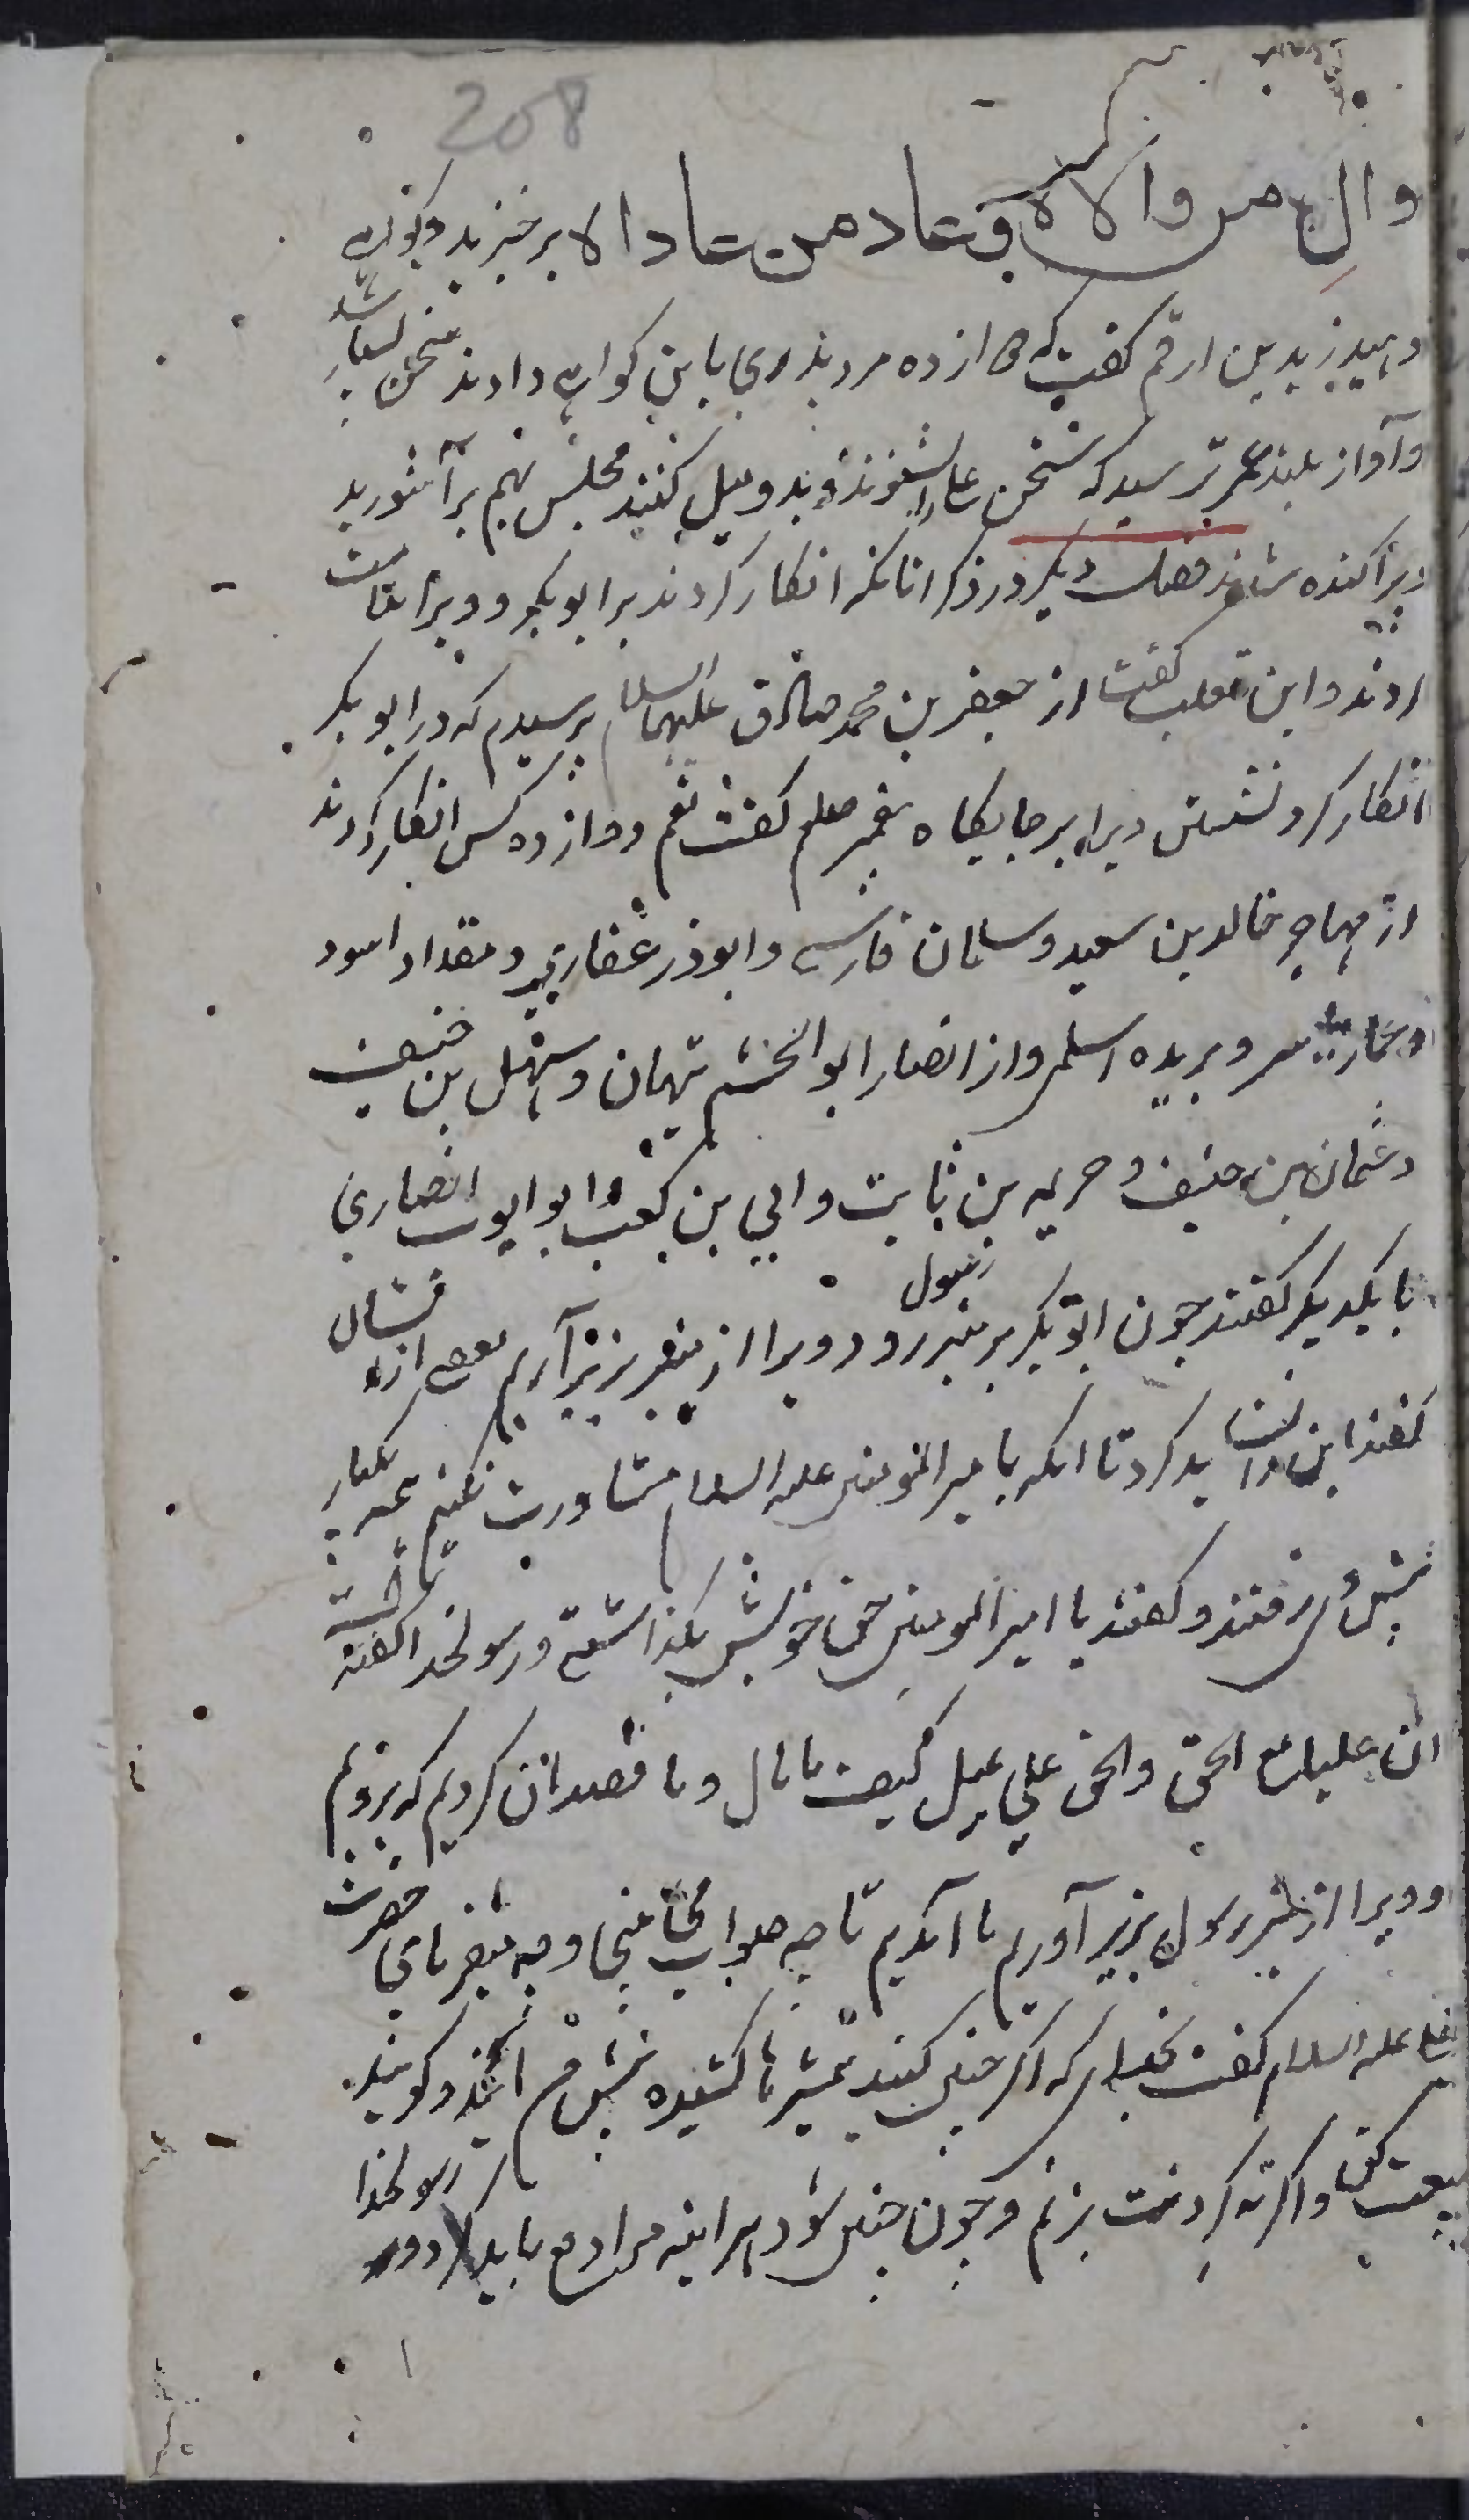 208
وال من والاه و عاد من عاداه برخیزید و کواهی
دهید زید بن ارقم کفت که دوازده مرد بدری باین کواهی دادند سخن بسیار شد
و آواز بلند عمر ترسید که سخن علی بشنوند و بدو میل کنند مجلس بهم برآشورید
و پراکنده شدند فصل دیکر در ذکر آنانکه انکار کردند بر ابوبکر و ویرا
ابن تغلب کفت از جعفر بن محمد صادق علیهما السلام پرسیدم که در ابوبکر
انکار کرد نشستن ویرا بر جایکاه پیغمبر صلعم کفت نعم دوازده کس انکار کردند
از مهاجر خالد بن سعید و سلمان فارسی و ابوذر غفاری و مقداد اسود
و عمار یاسر و بریده اسلمی و از انصار ابو الخثیم تیهان و سهل بن حنیف
و عثمان بن حنیف و خزیمه بن ثابت و ابی بن کعب و ابو ایوب انصاری
با یکدیکر کفتند چون ابوبکر بر منبر رسول رود ویرا از منبر بزیر آریم بعضی از ایشان
کفتند این را نشاید کرد تا آنکه با امیر المؤمنین علیه السلام مشاورت نکنیم همه بیکبار
پیش وی رفتند و کفتند یا امیر المومنین حق خویش بکذاشتی و رسولخدا کفته است
ان علیا مع الحق والحق مع علی یمیل کیف ما مال و ما قصد آن کردیم که برویم
و ویرا از منبر رسول بزیر آوریم ما آمدیم تا چه صواب می بینی و چه میفرمای حضرت
علی علیه السلام کفت بخدای که اکر چنین کنید شمشیرها کشیده پیش من آیند و کویند
بیعت کن و اکر نه کردنت بزنم و چون چنین شود هر آینه مرا دفع باید کرد و رسولخدا